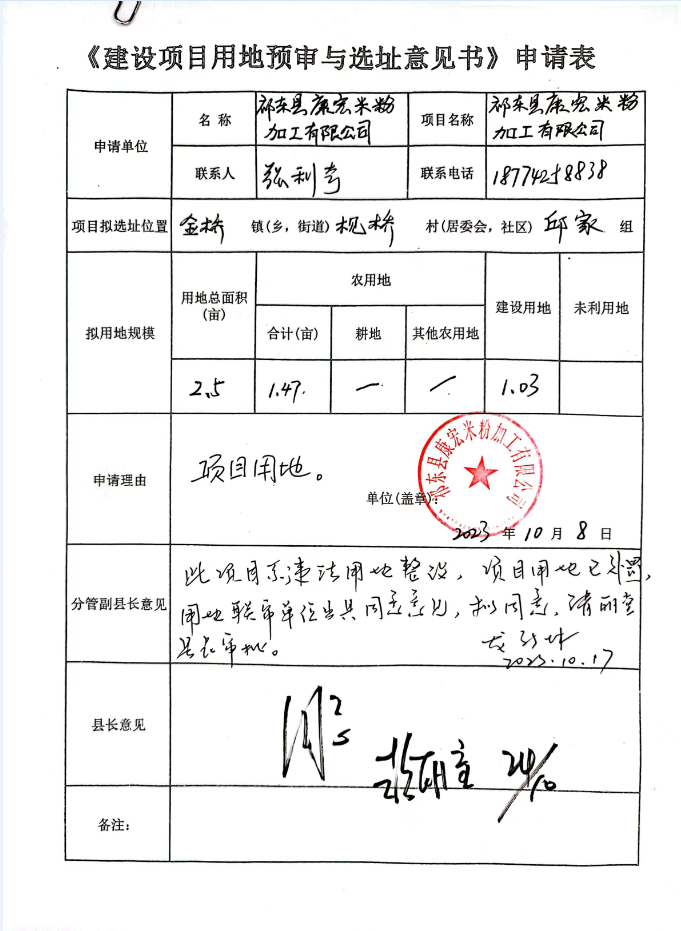 《建设项目用地预审与选址意见书》申请表
申请单位
名 称
祁东县康宏米粉
加工有限公司
项目名称
祁东县康宏米粉
加工有限公司
联系人
张利
联系电话
18774258838
项目拟选址位置
金桥 镇(乡，街道) 枧桥 村(居委会，社区) 邱家 组
拟用地规模
用地总面积
(亩)
农用地
建设用地
未利用地
合计(亩)
耕地
其他农用地
2.5
1.47.
—
/
1.03
申请理由
项目用地。
单位(盖章):
祁东县康宏米粉加工有限公司
2023 年 10 月 8 日
分管副县长意见
此项目系违法用地整改，项目用地已处罚，
用地联审单位出具同意意见，拟同意，请
县长审批。
2023.10.17
县长意见
24/10
备注：